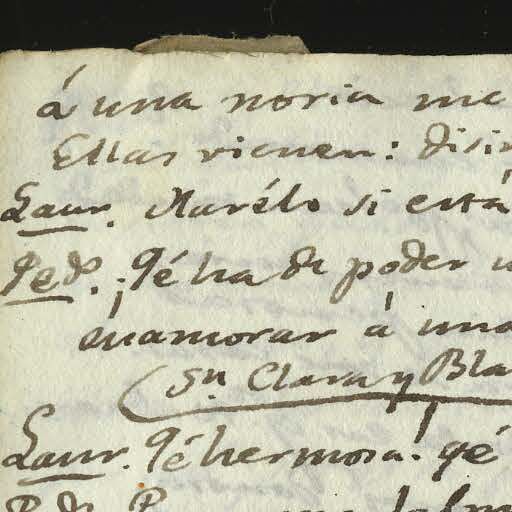 á una noria me
Ellas vienen: disim
Laur. Harélo si está
Pedº. ¡Qé ha de poder u
enamorar á una
(Sn. Clara y Bla
Laur. Qé hermosa! qé